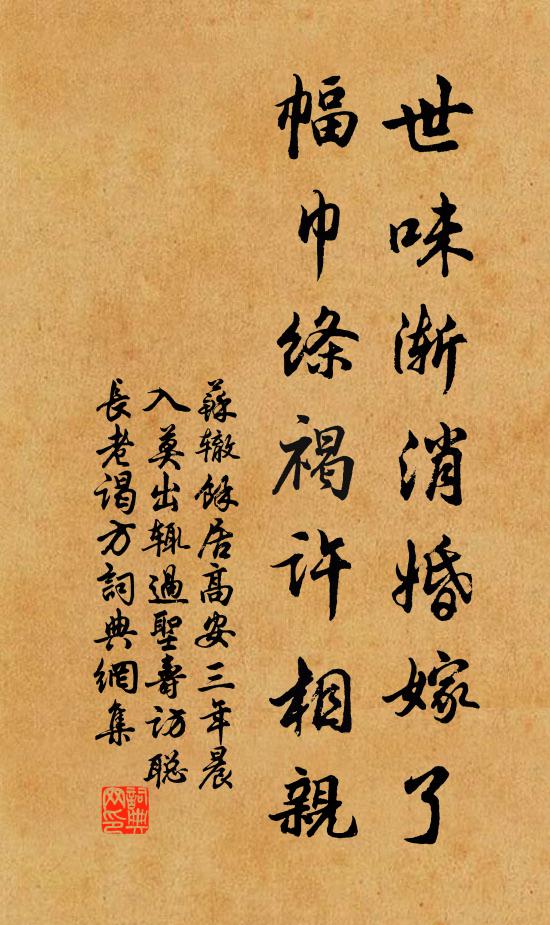 世味漸消婚嫁了
幅巾絛褐許相親
蘇轍餘居高安三年晨
入莫出輒過聖壽訪聰
長老謁方詞典網集
詞典網印